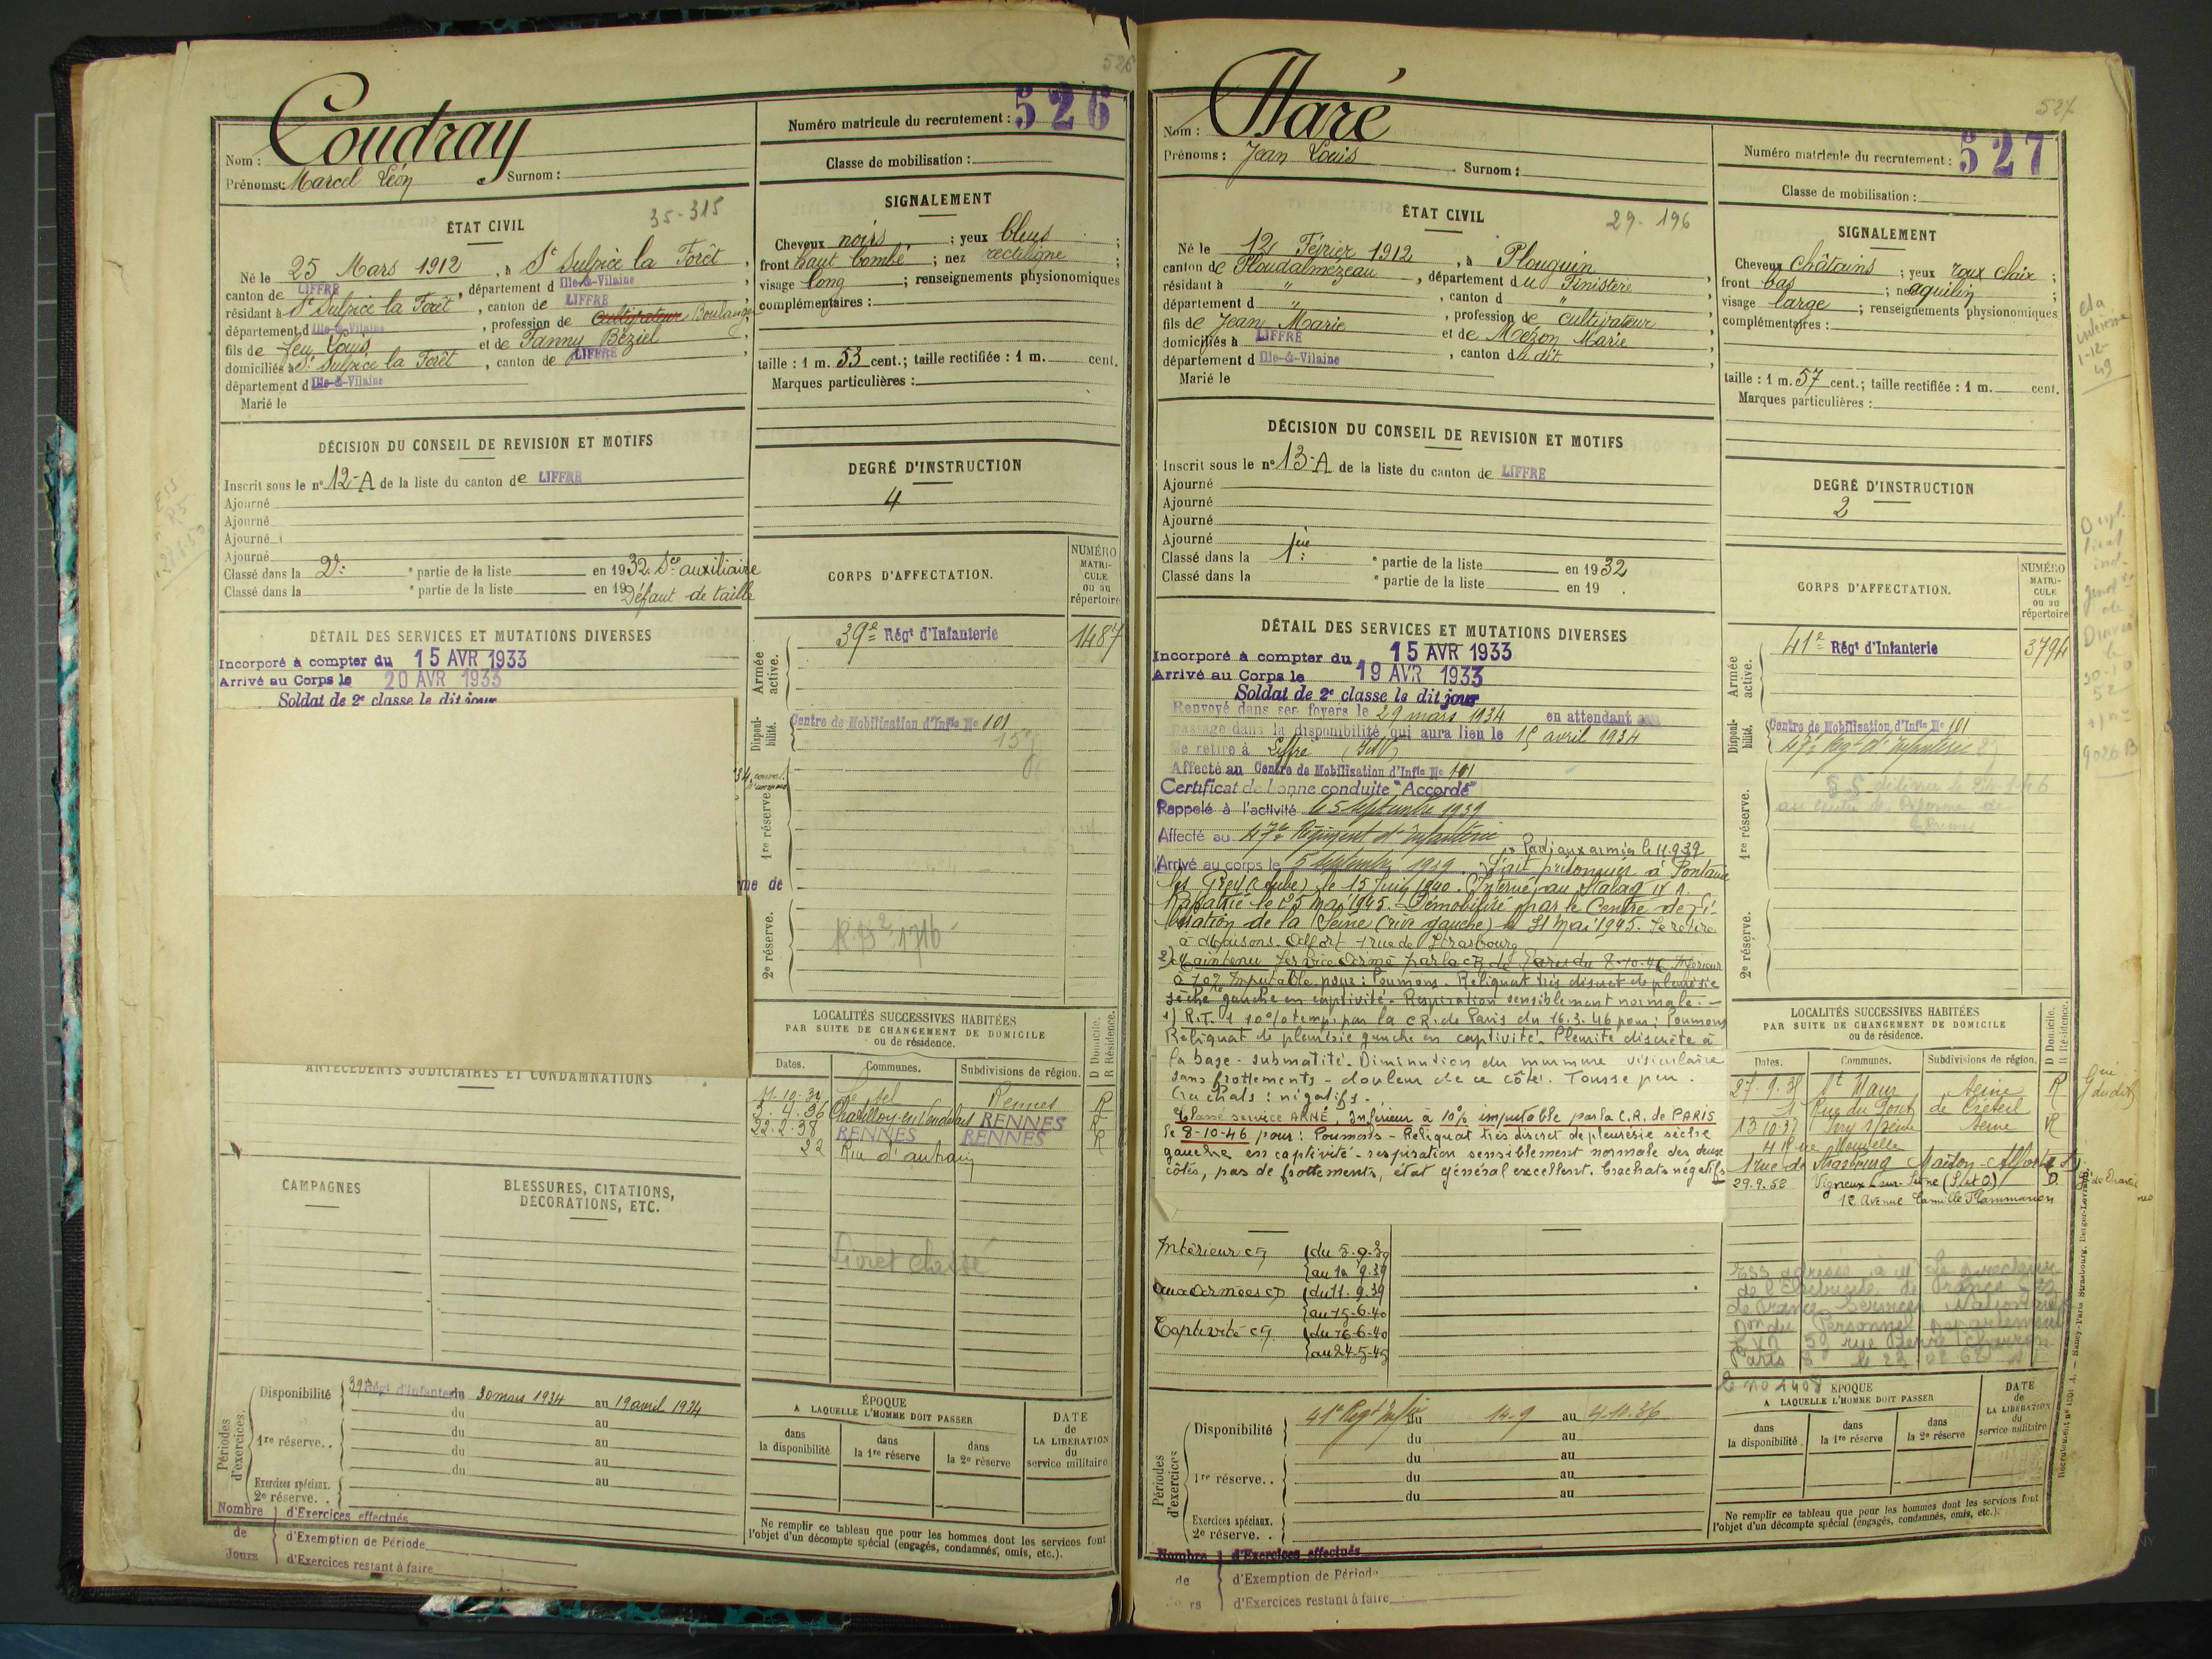 526
Coudray
Nom :
Prénoms : Marcel Léon Surnom :
Numéro matricule du recrutement : 526
Classe de mobilisation :
ÉTAT CIVIL
35-315
Né le 25 Mars 1912, à St Sulpice la Forêt,
canton de LIFFRÉ, département d Ille-&-Vilaine,
résidant à St Sulpice la Forêt, canton de LIFFRÉ
département d Ille-&-Vilaine, profession de cultivateur Boulanger
fils de feu Louis et de Fanny Béziel,
domiciliés à St Sulpice la Forêt, canton de LIFFRÉ,
département d Ille-&-Vilaine
Marié le
SIGNALEMENT
Cheveux noirs ; yeux bleus ;
front haut bombé ; nez rectiligne ;
visage long ; renseignements physionomiques
complémentaires :
taille : 1 m. 53 cent. ; taille rectifiée : 1 m. cent.
Marques particulières :
DÉCISION DU CONSEIL DE REVISION ET MOTIFS
Inscrit sous le n° 12-A de la liste du canton de LIFFRÉ
Ajourné
Ajourné
Ajourné
Ajourné
Classé dans la 2e partie de la liste en 1932. Sce auxiliaire
Classé dans la partie de la liste en 19 Défaut de taille
DEGRÉ D'INSTRUCTION
4
CORPS D'AFFECTATION.
NUMÉRO
MATRI-
CULE
ou au
répertoire
DÉTAIL DES SERVICES ET MUTATIONS DIVERSES
Incorporé à compter du 15 AVR 1933
Arrivé au Corps le 20 AVR 1933
Soldat de 2e classe le dit jour
Armée active.
39e Régt d'Infanterie
1487
Disponibilité.
Centre de Mobilisation d'Infie No 101
1re réserve.
me de
2e réserve.
ANTÉCÉDENTS JUDICIAIRES ET CONDAMNATIONS
LOCALITÉS SUCCESSIVES HABITÉES
PAR SUITE DE CHANGEMENT DE DOMICILE
ou de résidence.
D Domicile.
R Résidence.
Dates. Communes. Subdivisions de région.
11.10.34 Le sel Rennes R
3.4.36 Chatillon en Vendelais RENNES R
22.2.38 RENNES RENNES R
22 Rue d'antrain
CAMPAGNES
BLESSURES, CITATIONS,
DÉCORATIONS, ETC.
Livret classé
Périodes d'exercices.
Disponibilité 39e Régt d'Infanterie du 30 mars 1934 au 19 avril 1934
du au
1re réserve. . du au
du au
du au
Exercices spéciaux. au
2e réserve. .
Nombre de Jours
d'Exercices effectués
d'Exemption de Période
d'Exercices restant à faire
ÉPOQUE
A LAQUELLE L'HOMME DOIT PASSER
dans la disponibilité
dans la 1re réserve
dans la 2e réserve
DATE
de
LA LIBÉRATION
du
service militaire
Ne remplir ce tableau que pour les hommes dont les services font
l'objet d'un décompte spécial (engagés, condamnés, omis, etc.).
527
Haré
Nom :
Prénoms : Jean Louis Surnom :
Numéro matricule du recrutement : 527
Classe de mobilisation :
ÉTAT CIVIL
29-196
Né le 12 Février 1912, à Plouguin
canton de Ploudalmézeau, département du Finistère,
résidant à ", canton d "
département d ", profession de cultivateur
fils de Jean Marie et de Mézon Marie
domiciliés à LIFFRÉ, canton du dit,
département d Ille-&-Vilaine
Marié le
SIGNALEMENT
Cheveux châtains ; yeux roux clair ;
front bas ; nez aquilin ;
visage large ; renseignements physionomiques
complémentaires :
taille : 1 m. 57 cent. ; taille rectifiée : 1 m. cent.
Marques particulières :
DÉCISION DU CONSEIL DE REVISION ET MOTIFS
Inscrit sous le n° 13-A de la liste du canton de LIFFRÉ
Ajourné
Ajourné
Ajourné
Ajourné
Classé dans la 1ère partie de la liste en 1932
Classé dans la partie de la liste en 19 .
DEGRÉ D'INSTRUCTION
2
CORPS D'AFFECTATION.
NUMÉRO
MATRI-
CULE
ou au
répertoire
DÉTAIL DES SERVICES ET MUTATIONS DIVERSES
Incorporé à compter du 15 AVR 1933
Arrivé au Corps le 19 AVR 1933
Soldat de 2e classe le dit jour
Renvoyé dans ses foyers le 29 mars 1934 en attendant son
passage dans la disponibilité qui aura lieu le 15 avril 1934
Se retire à Liffré (I et V)
Affecté au Centre de Mobilisation d'Infie No 101
Certificat de bonne conduite "Accordé"
Rappelé à l'activité le 5 septembre 1939
Affecté au 47e Régiment d'Infanterie
Arrivé au corps le 5 septembre 1939. Parti aux armées le 11.9.39
Fait prisonnier à Fontaine
les Grey (Aube) le 15 Juin 1940. Interné au Stalag IV A.
Rapatrié le 25 mai 1945. Démobilisé par le Centre de Li-
bération de la Seine (rive gauche) le 31 mai 1945. Se retire
à Maisons-Alfort 1 rue de Strasbourg
2) Maintenu Service Armé par la CR de Paris du 8-10-46 Inférieur
à 10% Imputable pour : Poumons. Reliquat très discret de pleurésie
sèche gauche en captivité. Respiration sensiblement normale. -
1) R.T. 1 10% temp. par la C.R. de Paris du 16.3.46 pour : Poumons
Reliquat de pleurésie gauche en captivité. Pleurite discrète à
la base - submatité. Diminution du murmure vésiculaire
sans frottements - douleur de ce côté. Tousse peu.
Crachats : négatifs.
Classé service ARMÉ, Inférieur à 10% imputable par la C.R. de PARIS
le 8-10-46 pour : Poumons - Reliquat très discret de pleurésie sèche
gauche en captivité - respiration sensiblement normale des deux
côtés, pas de frottements, état général excellent. Crachats négatifs
Armée active.
41e Régt d'Infanterie
3794
Disponibilité.
Centre de Mobilisation d'Infie No 101
47e Regt d'Infanterie
1re réserve.
2e réserve.
LOCALITÉS SUCCESSIVES HABITÉES
PAR SUITE DE CHANGEMENT DE DOMICILE
ou de résidence.
D Domicile.
R Résidence.
Dates. Communes. Subdivisions de région.
27-9-35 St Maur Seine R
1 Rue du Pont de Créteil
13 10 37 Ivry s/Seine Seine R
1 rue de Strasbourg Maison-Alfort
29.9.52 Vigneux-sur-Seine (S et O) D
12 Avenue Camille Flammarion
Intérieur CG du 5-9-39
au 10.9.39
aux Armées CD du 11.9.39
au 15-6-40
Captivité CG du 16-6-40
au 24-5-45
Périodes d'exercices
Disponibilité 41e Regt Infie du 14-9 au 4.10.36
du au
du au
1re réserve. . du au
du au
Exercices spéciaux.
2e réserve. .
Nombre de Jours
d'Exercices effectués
d'Exemption de Période
d'Exercices restant à faire
ESS adressé à M Le Directeur
de l'Electricité de France Gaz
de France Services Nationaux
Paris 8 le 23 02 62
ÉPOQUE
A LAQUELLE L'HOMME DOIT PASSER
dans la disponibilité
dans la 1re réserve
dans la 2e réserve
DATE
de
LA LIBÉRATION
du
service militaire
Ne remplir ce tableau que pour les hommes dont les services font
l'objet d'un décompte spécial (engagés, condamnés, omis, etc.).
1-12-
49
9026 B